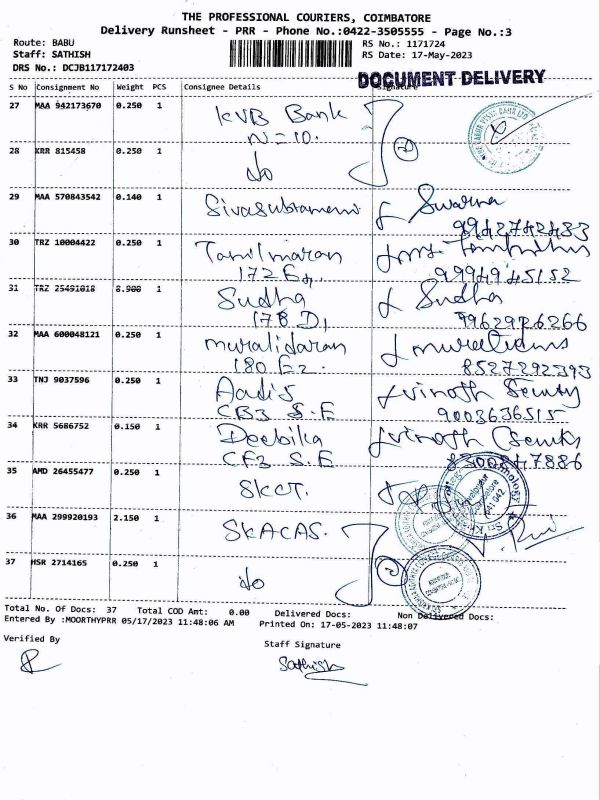 THE PROFESSIONAL COURIERS, COIMBATORE
Delivery Runsheet - PRR - Phone No.:0422-3505555 - Page No.:3
Route: BABU
Staff: SATHISH
DRS No.: DCJB117172403
RS No.: 1171724
RS Date: 17-May-2023
DOCUMENT DELIVERY
S No Consignment No Weight PCS Consignee Details
27 MAA 942173670 0.250 1 KVB Bank
N=10.
28 KRR 815458 0.250 1 do
29 MAA 570843542 0.140 1 Sivasubramani Swarna
9942742433
30 TRZ 10004422 0.250 1 Tamilmaran
172 E4, 9994945152
31 TRZ 25491018 8.900 1 Sudha Sudha
178 D, 9962926266
32 MAA 600048121 0.250 1 muralidaran
180 E2 8527292393
33 TNJ 9037596 0.250 1 Aadis vinoth
CB3 S.E 9003636515
34 KRR 5686752 0.150 1 Deebika vinoth
CF3 S.E 8300847886
35 AMD 26455477 0.250 1 SKCT.
36 MAA 299920193 2.150 1 SKACAS.
37 HSR 2714165 0.250 1 do
Total No. Of Docs: 37 Total COD Amt: 0.00 Delivered Docs: Non Delivered Docs:
Entered By :MOORTHYPRR 05/17/2023 11:48:06 AM Printed On: 17-05-2023 11:48:07
Verified By
Staff Signature
Sathish